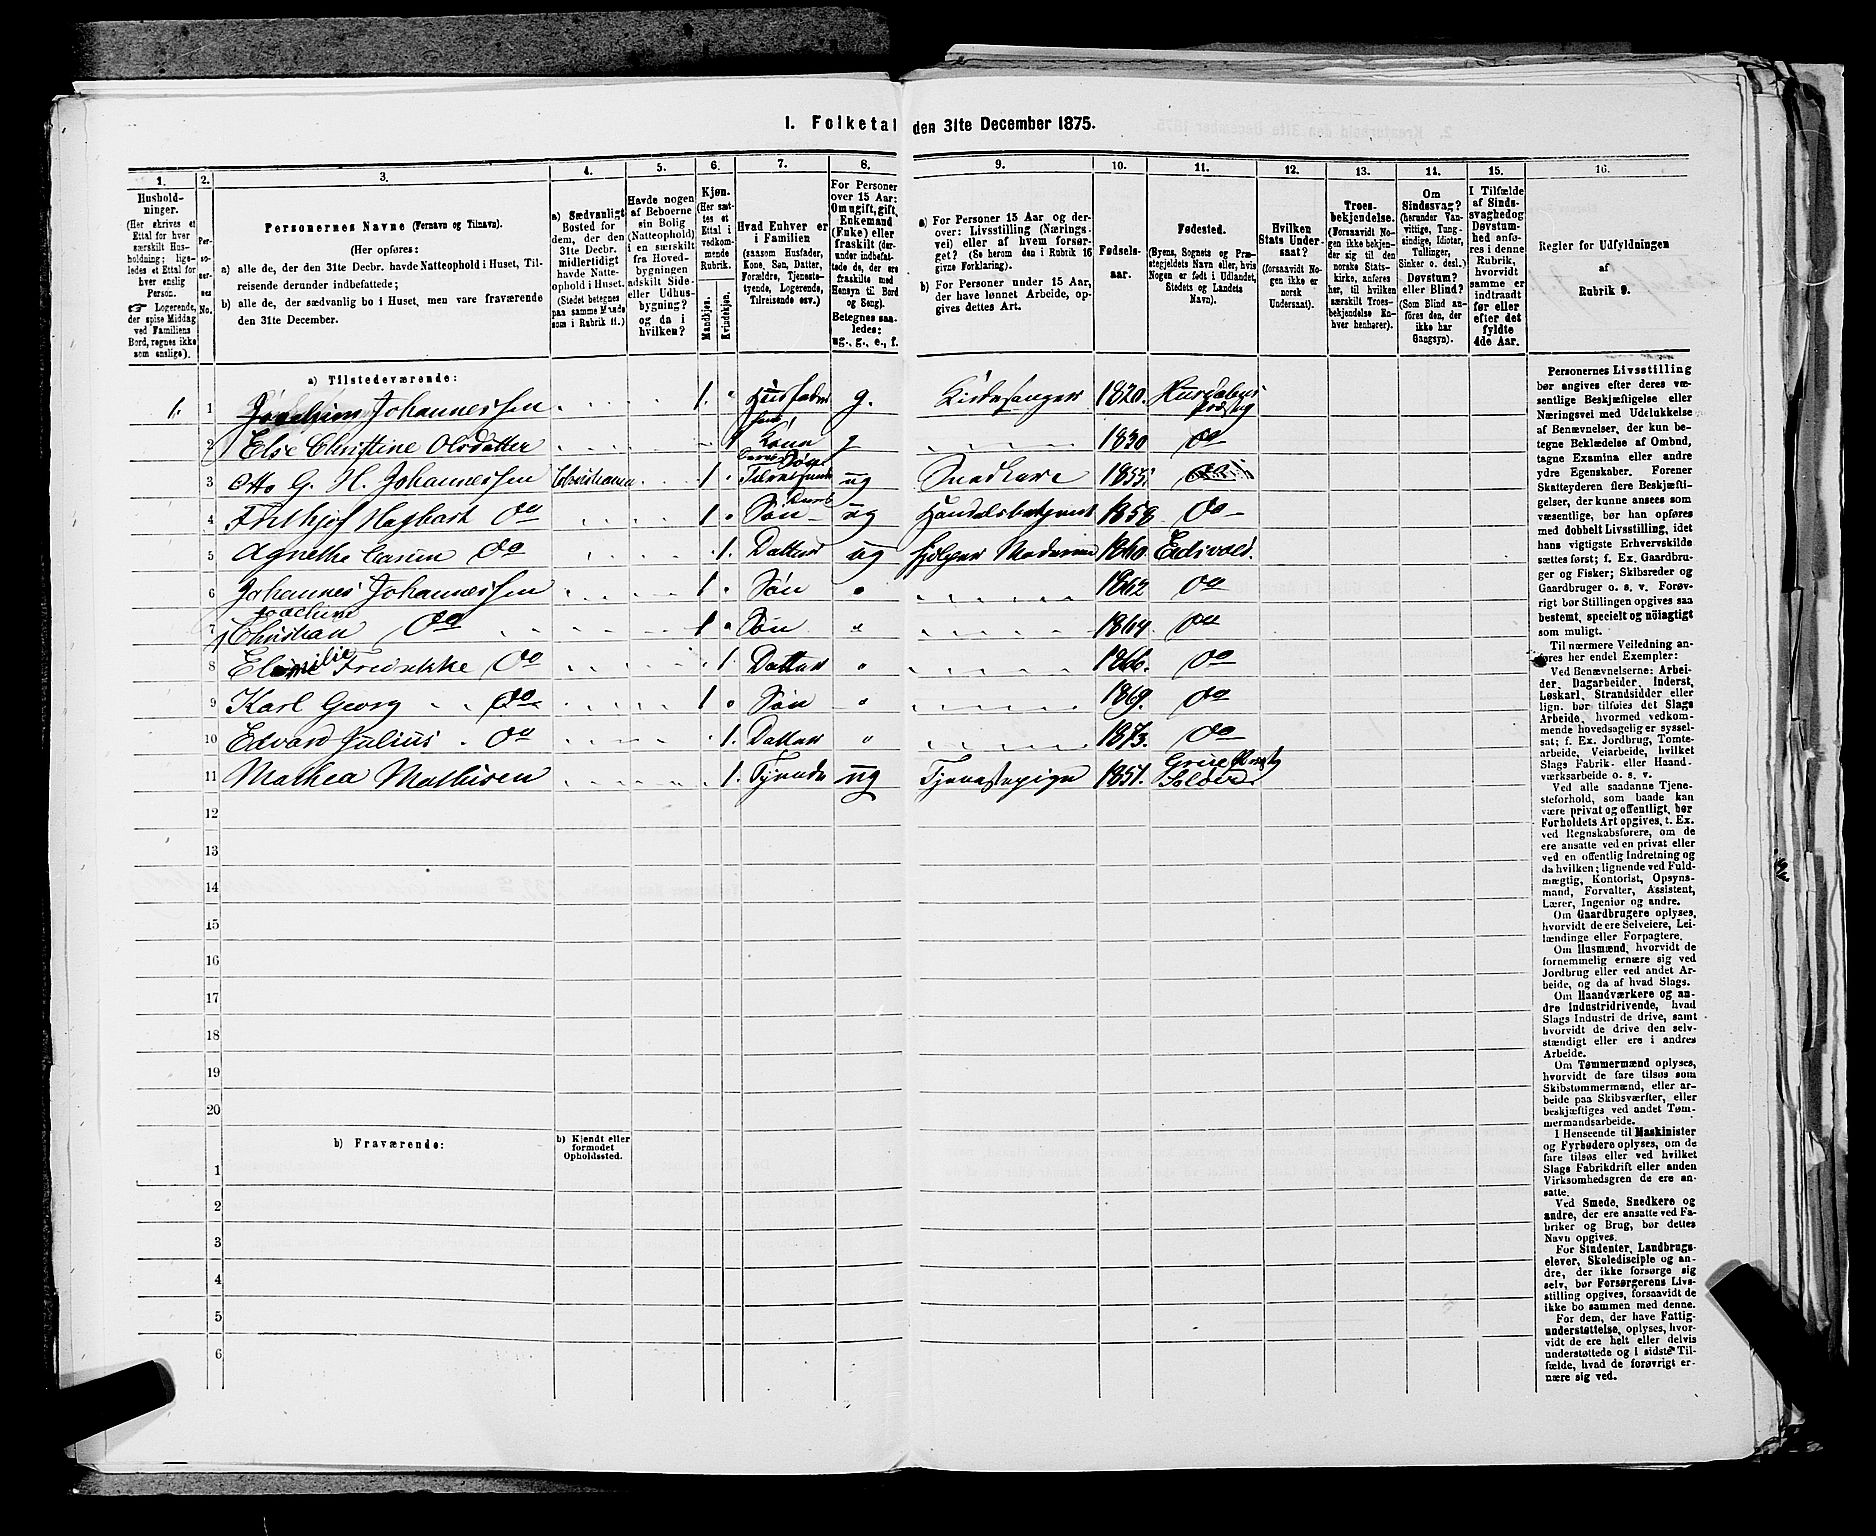 1. Folketal den 31te December 1875.
1. 2. 3. 4. 5. 6. 7. 8. 9. 10. 11. 12. 13. 14. 15. 16.
Hushold-
ninger.
(Her skrives et
Ettal for hver
særskilt Hus-
holdning; lige-
ledes et Ettal for
hver enslig
Person.
☞ Logerende,
der spise Middag
ved Familiens
Bord, regnes ikke
som enslige).
Per-
so-
ner-
nes
No.
Personernes Navne (Fornavn og Tilnavn).
(Her opføres:
a) alle de, der den 31te Decbr. havde Natteophold i Huset, Til-
reisende derunder indbefattede;
b) alle de, der sædvanlig bo i Huset, men vare fraværende
den 31te December.
a) Sædvanligt
Bosted for
dem, der den
31te Decbr.
midlertidigt
havde Natte-
ophold i Huset.
(Stedet betegnes
paa samme Maade
som i Rubrik 11.)
Havde nogen
af Beboerne
sin Bolig
(Natteophold)
i en særskilt
fra Hoved-
bygningen
adskilt Side-
eller Udhus-
bygning?
og da i
hvilken?
Kjøn.
(Her sæt-
tes et
Ettal i
vedkom-
mende
Rubrik.
Mandkjøn.
Kvindekjøn.
Hvad Enhver er
i Familien
(saasom Husfader,
Kone, Søn, Datter,
Forældre, Tjeneste-
tyende, Logerende,
Tilreisende osv.)
For Personer
over 15 Aar:
Om ugift, gift,
Enkemand
(Enke) eller
fraskilt (der-
under indbefat-
tede de, der ere
fraskilte med
Hensyn til Bord
og Seng).
Betegnes saa-
ledes:
ug., g., e., f.
a) For Personer 15 Aar og der-
over: Livsstilling (Nærings-
vei) eller af hvem forsør-
get? (Se herom den i Rubrik 16
givne Forklaring).
b) For Personer under 15 Aar,
der have lønnet Arbeide, op-
gives dettes Art.
Fødsels-
aar.
Fødested.
(Byens, Sognets og Præ-
stegjeldets Navn eller, hvis
Nogen er født i Udlandet,
Stedets og Landets
Navn).
Hvilken
Stats Under-
saat?
(forsaavidt No-
gen ikke er
norsk
Undersaat).
Troes-
bekjendelse.
(Forsaavidt No-
gen ikke bekjen-
der sig til den
norske Stats-
kirke, anføres
her, til hvilken
særskilt Troes-
bekjendelse En-
hver henhører).
Om
Sindssvag?
(herunder Van-
vittige, Tung-
sindige, Idioter,
Tullinger,
Sinker o. desl.)
Døvstum?
eller Blind?
(Som Blind an-
føres den, der
ikke har
Gangsyn).
I Tilfælde
af Sinds-
svaghed og
Døvstum-
hed anfø-
res i denne
Rubrik,
hvorvidt
samme er
indtraadt
før eller
efter det
fyldte
4de Aar.
Regler for Udfyldningen
af
Rubrik 9.
a) Tilstedeværende:
1. 1 Joachim Johannessen 1. Husfader g. Kirkesanger 1820. Hurdalens Præstg
2 Else Christine Olsdatter 1 Kone g 1830 do
3 Otto G. H. Johannessen Christiania 1 ug Snedkere 1855
4 Frithjof Hagbart do 1 Søn ug Handelsbetjent 1858 do
5 Agnethe Caren do 1. Datter ug hjelper Moderen 1860. Eidsvold.
6 Johannes Johannessen 1 Søn 1862 do
7 Christian Joachim do 1 Søn 1864 do
8 Emilie Fredrikke do 1. Datter 1866. do
9 Karl Georg do 1 Søn 1869. do
10 Edvard Julius do 1. Datter 1873. do
11 Mathea Mathisen 1. Tyende ug Tjenestepige 1851. Grue Præstg Solør
12
13
14
15
16
17
18
19
20
b) Fraværende:
b) Kjendt eller
formodet
Opholdssted.
1
2
3
4
5
6
Personernes Livsstilling
bør angives efter deres væ-
sentlige Beskjæftigelse eller
Næringsvei med Udelukkelse
af Benævnelser, der kun be-
tegne Beklædelse af Ombud,
tagne Examina eller andre
ydre Egenskaber. Forener
Skatteyderen flere Beskjæfti-
gelser, der kunne ansees som
væsentlige, bør han opføres
med dobbelt Livsstilling, idet
hans vigtigste Erhvervskilde
sættes først; f. Ex. Gaardbru-
ger og Fisker; Skibsreder og
Gaardbruger o. s. v. Forøv-
rigt bør Stillingen opgives saa
bestemt, specielt og nöiagtigt
som muligt.
Til nærmere Veiledning an-
føres her endel Exempler:
Ved Benævnelserne: Arbei-
der, Dagarbeider, Inderst,
Løskarl, Strandsidder eller
lign. bør tilføies det Slags
Arbeide, hvormed vedkom-
mende hovedsagelig er syssel-
sat; f. Ex. Jordbrug, Tomte-
arbeide, Veiarbeide, hvilket
Slags Fabrik- eller Haand-
værksarbeide o. s. v.
Ved alle saadanne Tjene-
steforhold, som baade kan
være privat og offentligt, bør
Forholdets Art opgives, t. Ex.
ved Regnskabsførere, om de
ere ansatte ved en privat eller
ved en offentlig Indretning og
da hvilken; lignende ved Fuld-
mægtig, Kontorist, Opsyns-
mand, Forvalter, Assistent,
Lærer, Ingeniør og andre.
Om Gaardbrugere oplyses,
hvorvidt de ere Selveiere, Lei-
lændinge eller Forpagtere.
Om Husmænd, hvorvidt de
fornemmelig ernære sig ved
Jordbrug eller ved andet Ar-
beide, og da af hvad Slags.
Om Haandværkere og an-
dre Industridrivende, hvad
Slags Industri de drive, samt
hvorvidt de drive den selv-
stændigt eller ere i andres
Arbeide.
Om Tømmermænd oplyses,
hvorvidt de fare tilsøs som
Skibstømmermænd, eller ar-
beide paa Skibsværfter, eller
beskjæftiges ved andet Tøm-
mermandsarbeide.
I Henseende til Maskinister
og Fyrbødere oplyses, om de
fare tilsøs eller ved hvilket
Slags Fabrikdrift eller anden
Virksomhedsgren de ere an-
satte.
Ved Smede, Snedkere og
andre, der ere ansatte ved Fa-
briker og Brug, bør dettes
Navn opgives.
For Studenter, Landbrugs-
elever, Skoledisciple og an-
dre, der ikke forsørge sig
selv, bør Forsørgerens Livs-
stilling opgives, forsaavidt de
ikke bo sammen med denne.
For dem, der have Fattig-
understøttelse, oplyses, hvor-
vidt de ere helt eller delvis
understøttede og i sidste Til-
fælde, hvad de forøvrigt er-
nære sig ved.